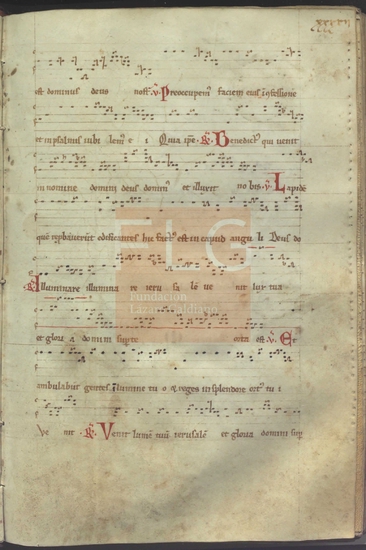 est dominus deus nost̄ ℣ Preoccupem̄ faciem eius
et in psalmis iubilem̄ e i Quia ip̄e ℟ Benedict᷒ qui venit
in nomine domini deus domin᷒ et illuxit nobis ℣ Lapidē
quē reprobaverūt edificantes hic fact᷒ est in caput anguli Deus do
Illuminare illumina re ieru sa le ve nit lux tua
et gloria domini super te orta est ℣ Et
ambulabūt gentes i lumine tu o & reges in splendore ort᷒ tu i
Ve nit ℟ Venit lumē tuū ierusalē et gloria domini sup̄
FLG
Fundación
Lázaro Galdiano